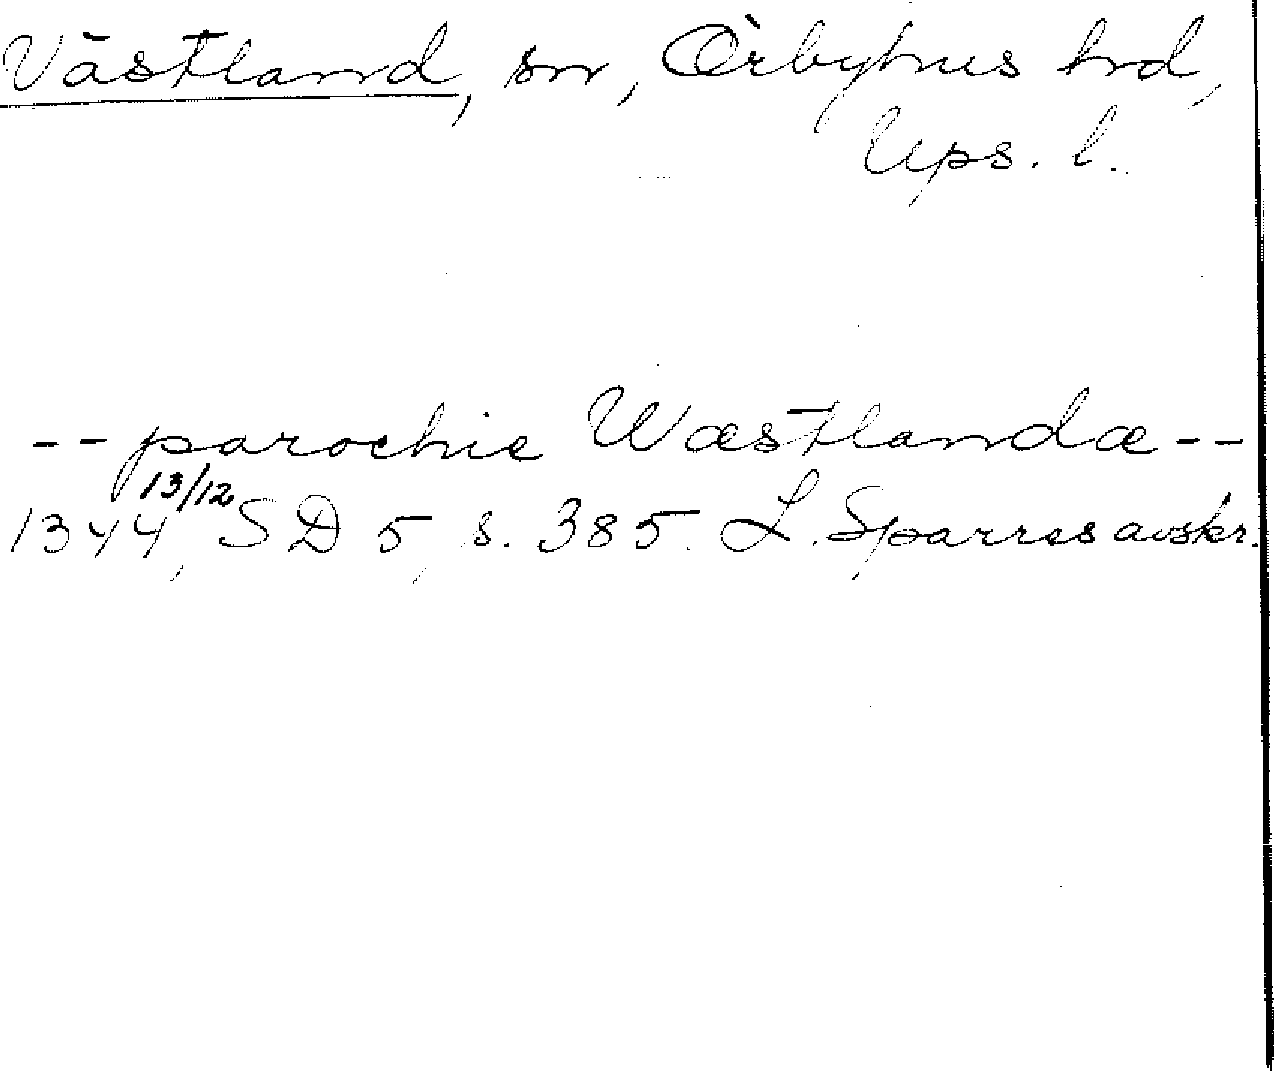 Västland, sn, Örbyhus hrd,
Ups. l.
-- parochie Wæstlandæ --
1344 13/12, SD 5, s. 385. L. Sparres avskr.